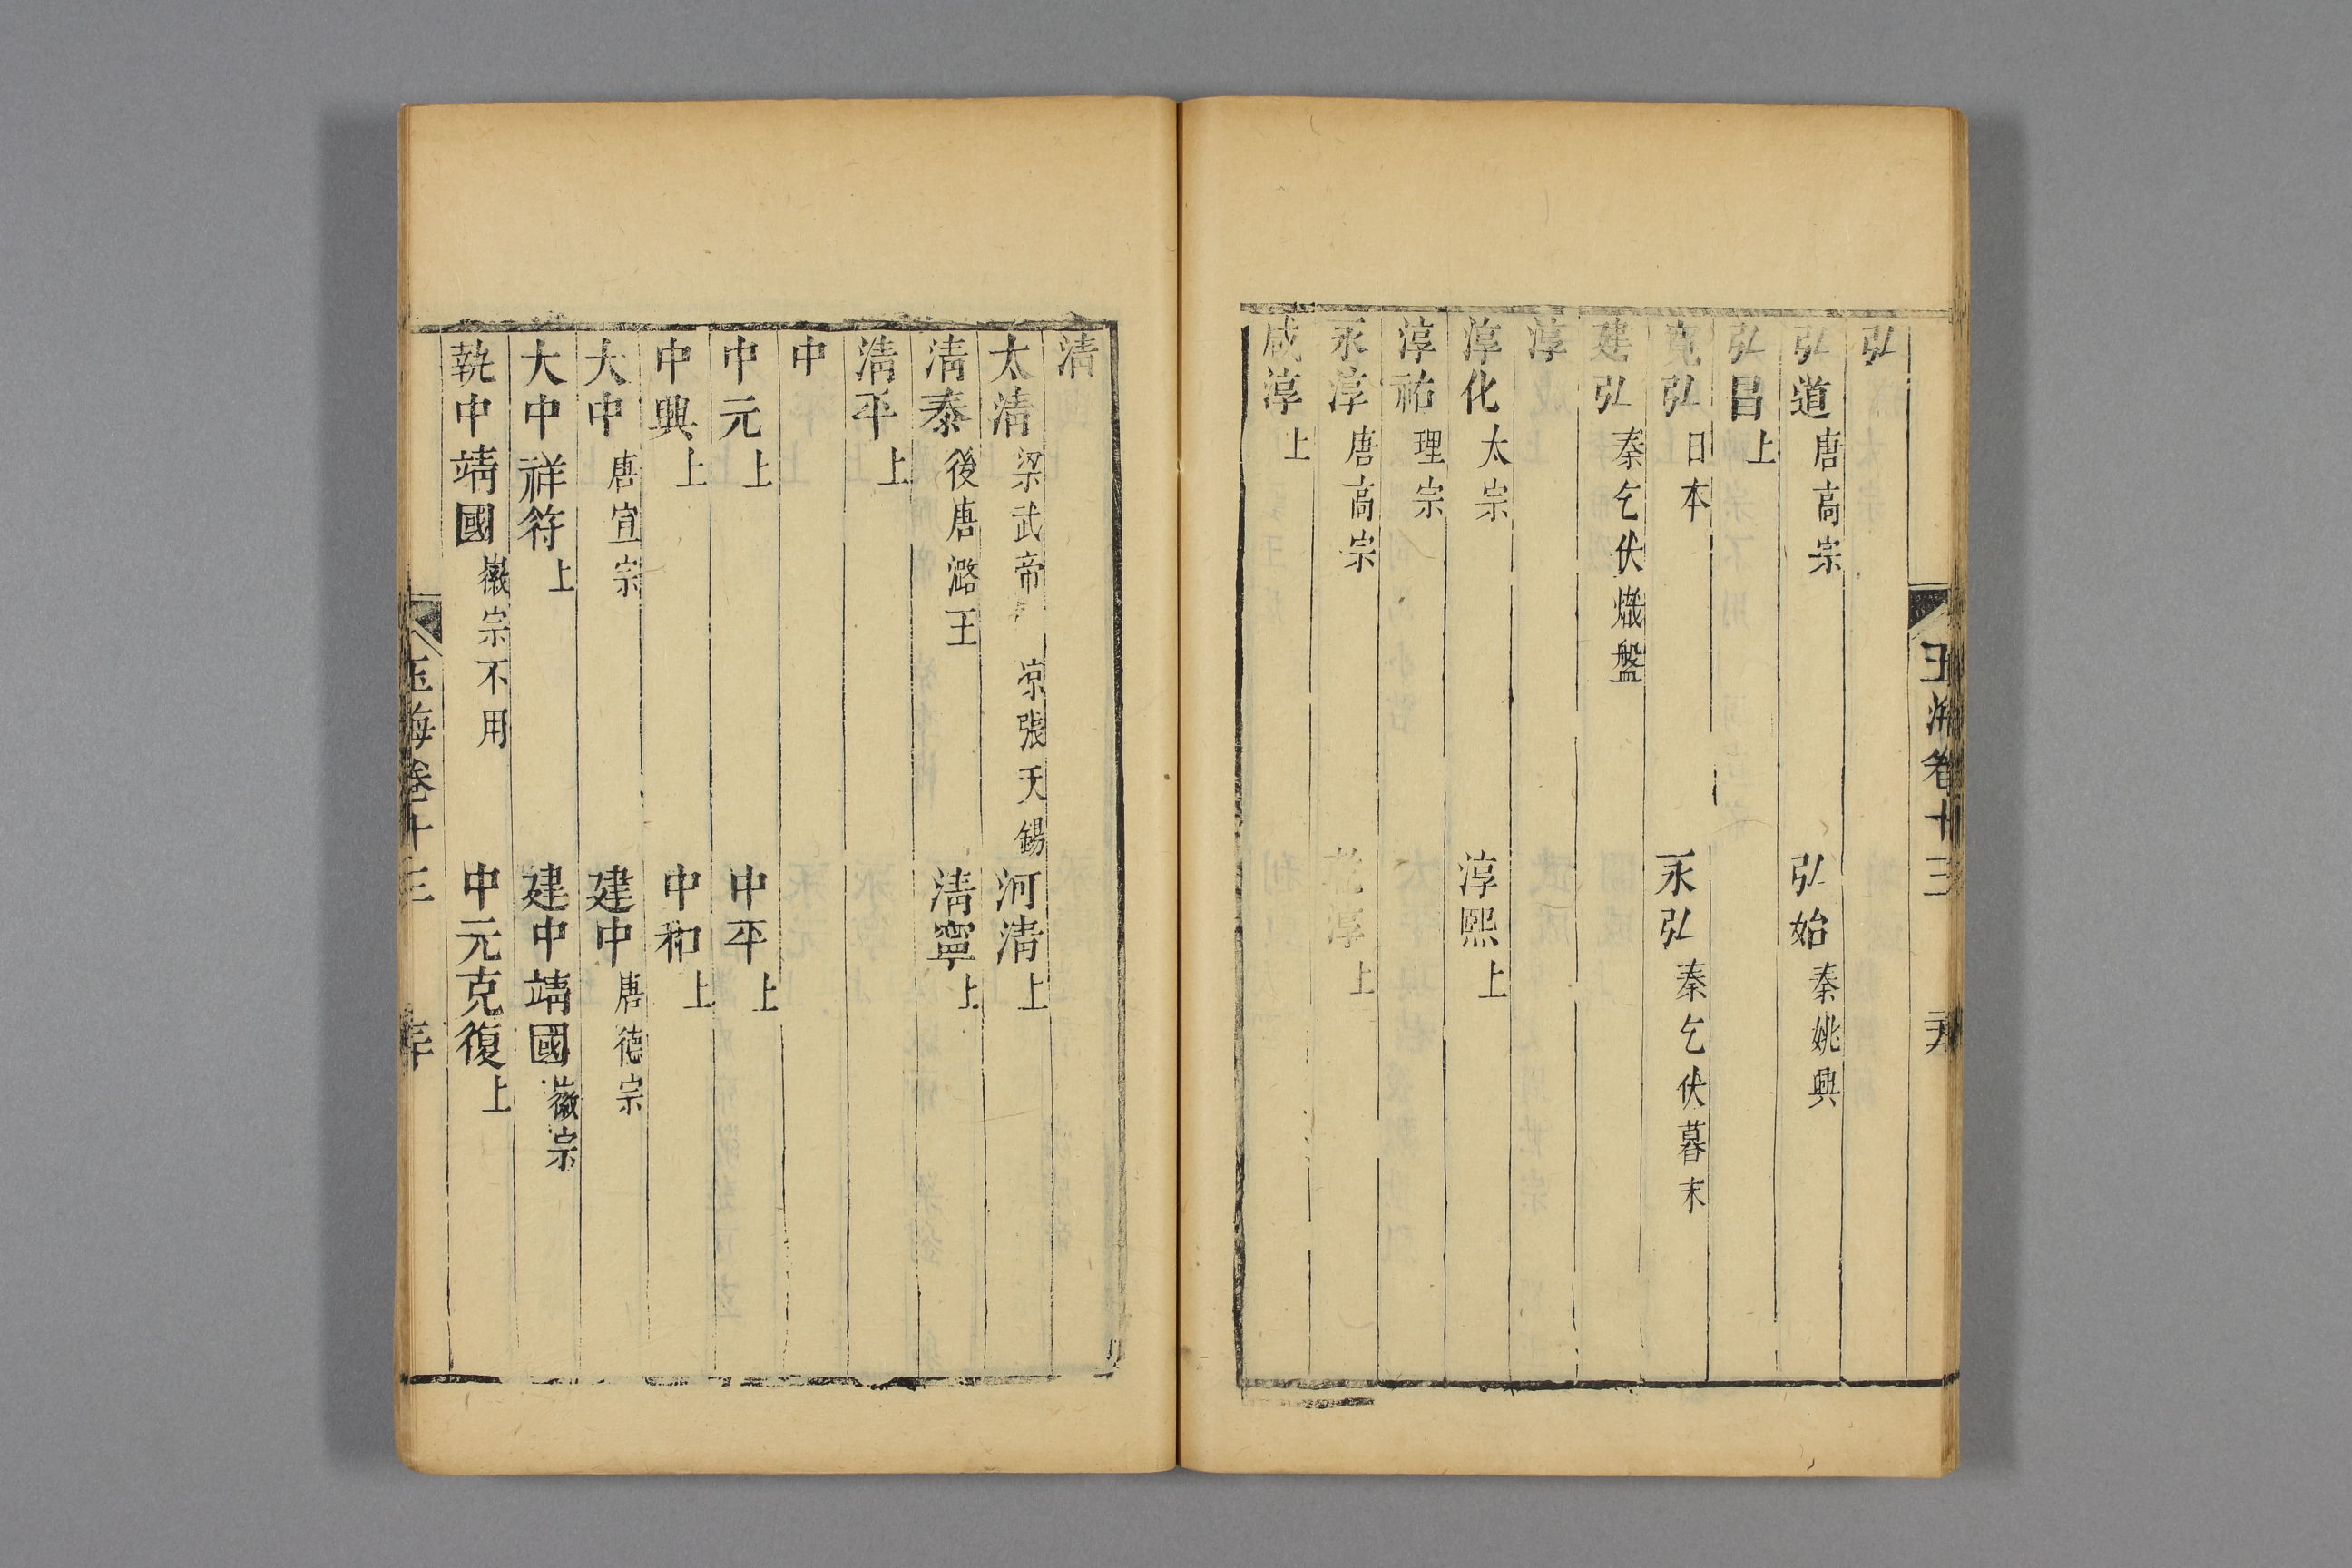 弘
弘道唐高宗 弘始秦姚興
弘昌上
寬弘日本 永弘秦乞伏暮末
建弘秦乞伏熾盤
淳
淳化太宗 淳熙上
淳祐理宗
永淳唐高宗 乾淳上
咸淳上
清
太清梁武帝 凉張天錫 河清上
清泰後唐潞王 清寧上
清平上
中
中元上 中平上
中興上 中和上
大中唐宣宗 建中唐德宗
大中祥符上 建中靖國徽宗
執中靖國徽宗不用 中元克復上
玉海卷十三
玉海卷十三